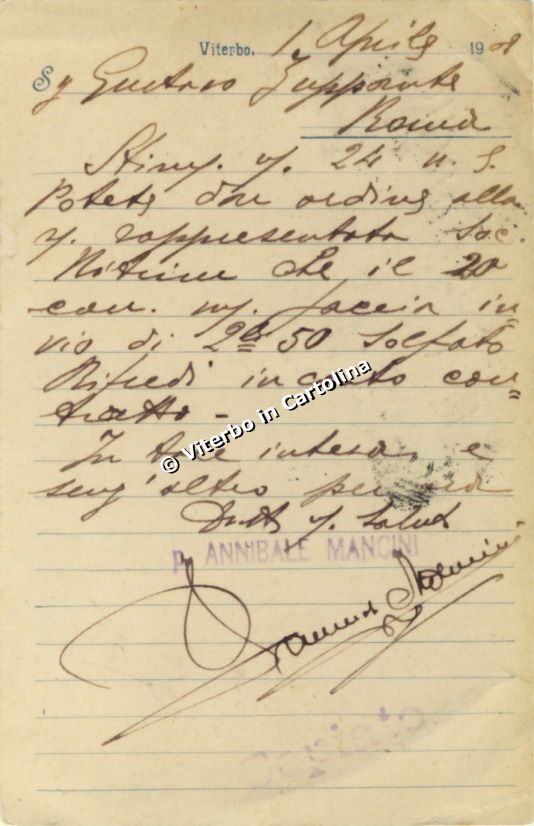 Viterbo, 1 Aprile 1908
Sg Gustavo Zupponte
Roma
Stim. v. 24 u. s.
Potete dar ordine alla
v. rappresentata Soc.
che il 20
corr. m. faccia in=
vio di 50 Solfato
Rifredi in conto con=
tratto -
In tale intesa e
senz'altro
Dist. v. Saluti
p. ANNIBALE MANCINI
Mancini
Copiato
© Viterbo in Cartolina